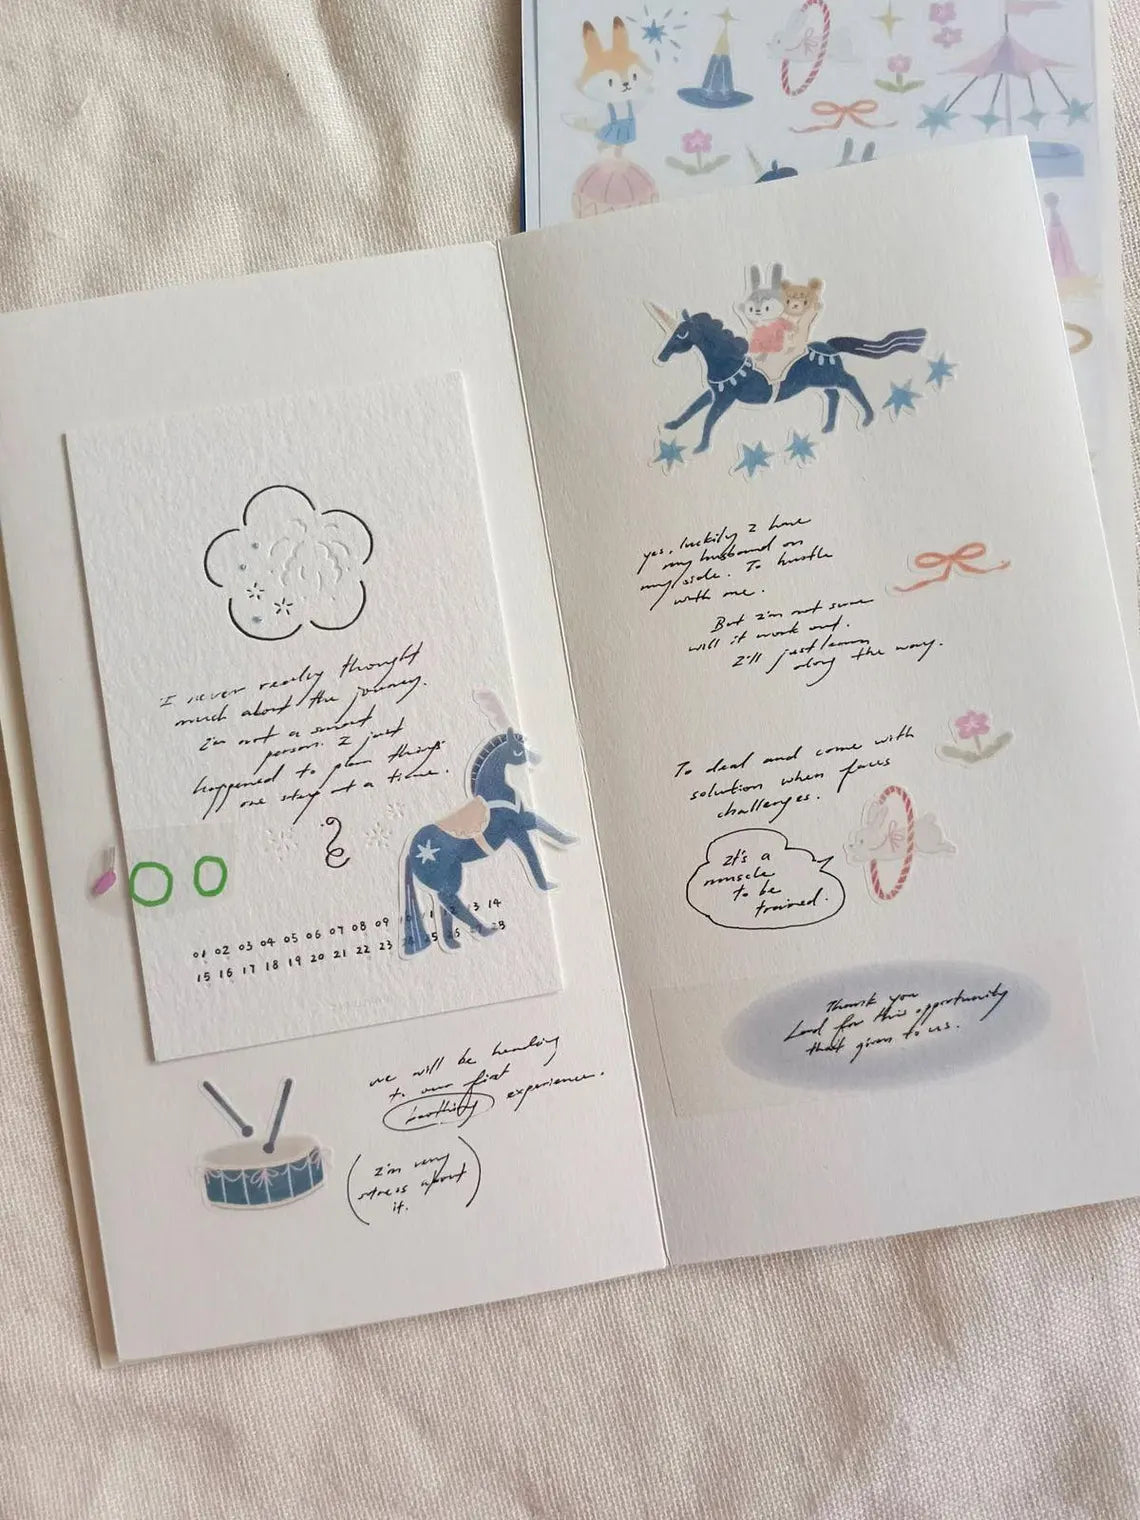 I never really thought
much about the journey.
I'm not a smart
person. I just
happened to plan things
one step at a time.
01 02 03 04 05 06 07 08 09 10 11 12 13 14
15 16 17 18 19 20 21 22 23 24 25 26 27 28
we will be heading
to our first
boothing experience.
(I'm very
stress about
it.)
yes, luckily I have
my husband on
my side. To hustle
with me.
But I'm not sure
will it work out.
I'll just learn
along the way.
To deal and come with
solution when faces
challenges.
It's a
muscle
to be
trained.
Thank you
Lord for this opportunity
that given to us.